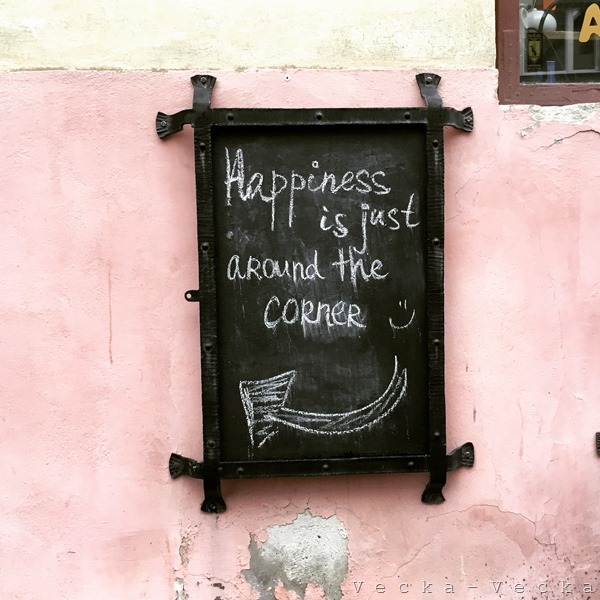 Happiness
is just
around the
corner :)
Vecka-Vecka